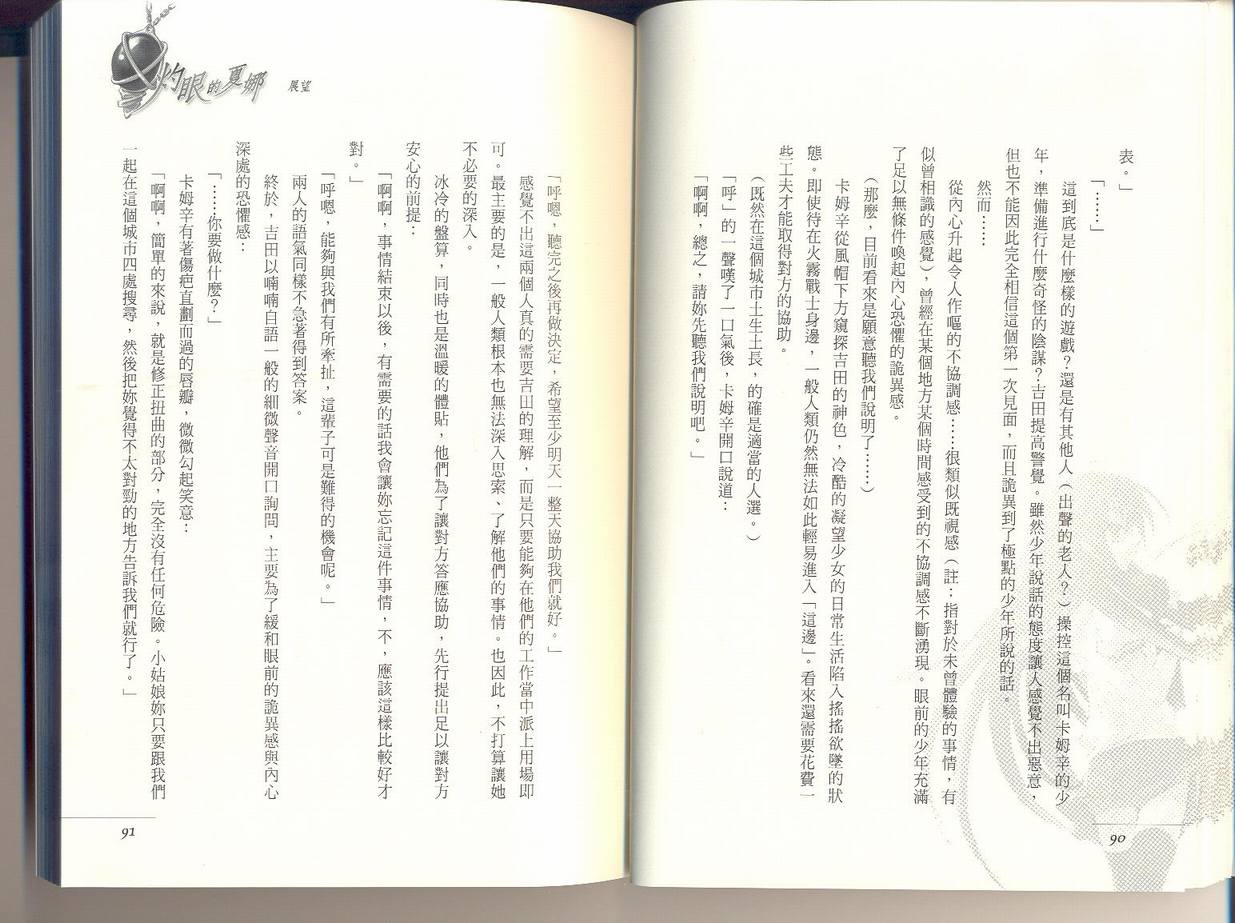 表。」
「⋯⋯」
這到底是什麼樣的遊戲？還是有其他人（出聲的老人？）操控這個名叫卡姆辛的少
年，準備進行什麼奇怪的陰謀？吉田提高警覺。雖然少年說話的態度讓人感覺不出惡意，
但也不能因此完全相信這個第一次見面，而且詭異到了極點的少年所說的話。
然而⋯⋯
從內心升起令人作嘔的不協調感⋯⋯很類似既視感（註：指對於未曾體驗的事情，有
似曾相識的感覺），曾經在某個地方某個時間感受到的不協調感不斷湧現。眼前的少年充滿
了足以無條件喚起內心恐懼的詭異感。
（那麼，目前看來是願意聽我們說明了⋯⋯）
卡姆辛從風帽下方窺探吉田的神色，冷酷的凝望少女的日常生活陷入搖搖欲墜的狀
態。即使待在火霧戰士身邊，一般人類仍然無法如此輕易進入「這邊」。看來還需要花費一
些工夫才能取得對方的協助。
（既然在這個城市土生土長，的確是適當的人選。）
「呼」的一聲嘆了一口氣後，卡姆辛開口說道：
「啊啊，總之，請妳先聽我們說明吧。」
90
灼眼的夏娜 展望
「呼嗯，聽完之後再做決定，希望至少明天一整天協助我們就好。」
感覺不出這兩個人真的需要吉田的理解，而是只要能夠在他們的工作當中派上用場即
可。最主要的是，一般人類根本也無法深入思索、了解他們的事情。也因此，不打算讓她
不必要的深入。
冰冷的盤算，同時也是溫暖的體貼，他們為了讓對方答應協助，先行提出足以讓對方
安心的前提：
「啊啊，事情結束以後，有需要的話我會讓妳忘記這件事情，不，應該這樣比較好才
對。」
「呼嗯，能夠與我們有所牽扯，這輩子可是難得的機會呢。」
兩人的語氣同樣不急著得到答案。
終於，吉田以喃喃自語一般的細微聲音開口詢問，主要為了緩和眼前的詭異感與內心
深處的恐懼感：
「⋯⋯你要做什麼？」
卡姆辛有著傷疤直劃而過的唇瓣，微微勾起笑意：
「啊啊，簡單的來說，就是修正扭曲的部分，完全沒有任何危險。小姑娘妳只要跟我們
一起在這個城市四處搜尋，然後把妳覺得不太對勁的地方告訴我們就行了。」
91